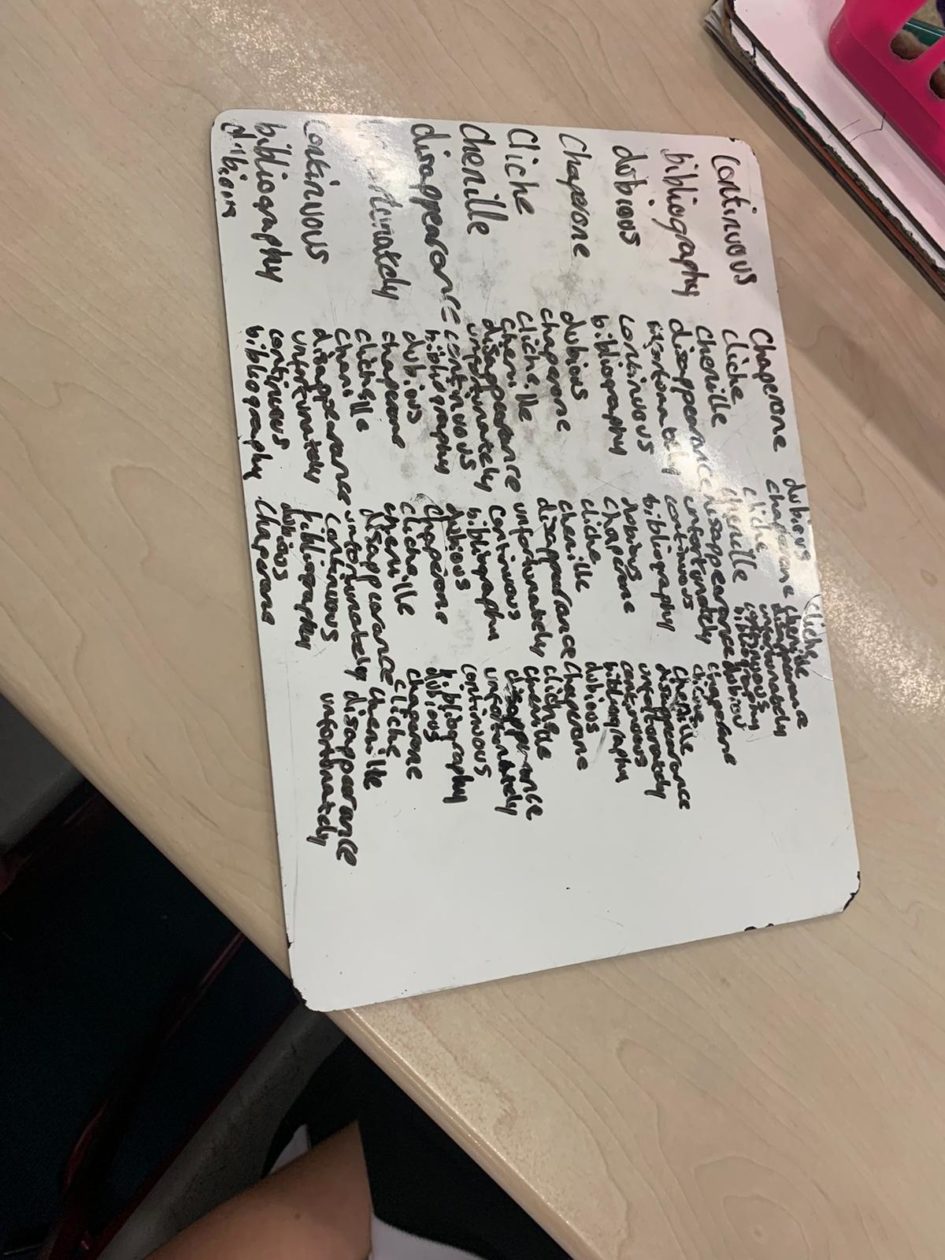 Continuous
bibliography
dubious
Chaperone
Cliche
Chenille
disappearance
Continuous
bibliography
Chaperone
cliche
chenille
disapperance
unfortunately
continuous
bibliography
dubious
chaperone
cliche
chenille
disapperance
unfortunately
continuous
bibliography
dubious
chapeone
cliche
chenille
disappearance
unfortunately
continuous
bibliography
dubious
chaperone
cliche
chenille
disappearance
unfortunately
continuous
bibliography
dubious
chaperone
cliche
chenille
disappearance
unfortunately
continuous
bibliography
dubious
chaperone
cliche
disappearance
unfortunately
continuous
bibliography
dubious
Chaperone
cliche
chenille
disappearance
unfortunately
continuous
dubious
chaperone
chenille
disappearance
unfortunately
continuous
bibliography
dubious
chaperone
cliche
chenille
continuous
bibliography
dubious
chaperone
cliche
chenille
disapperance
unfortunately